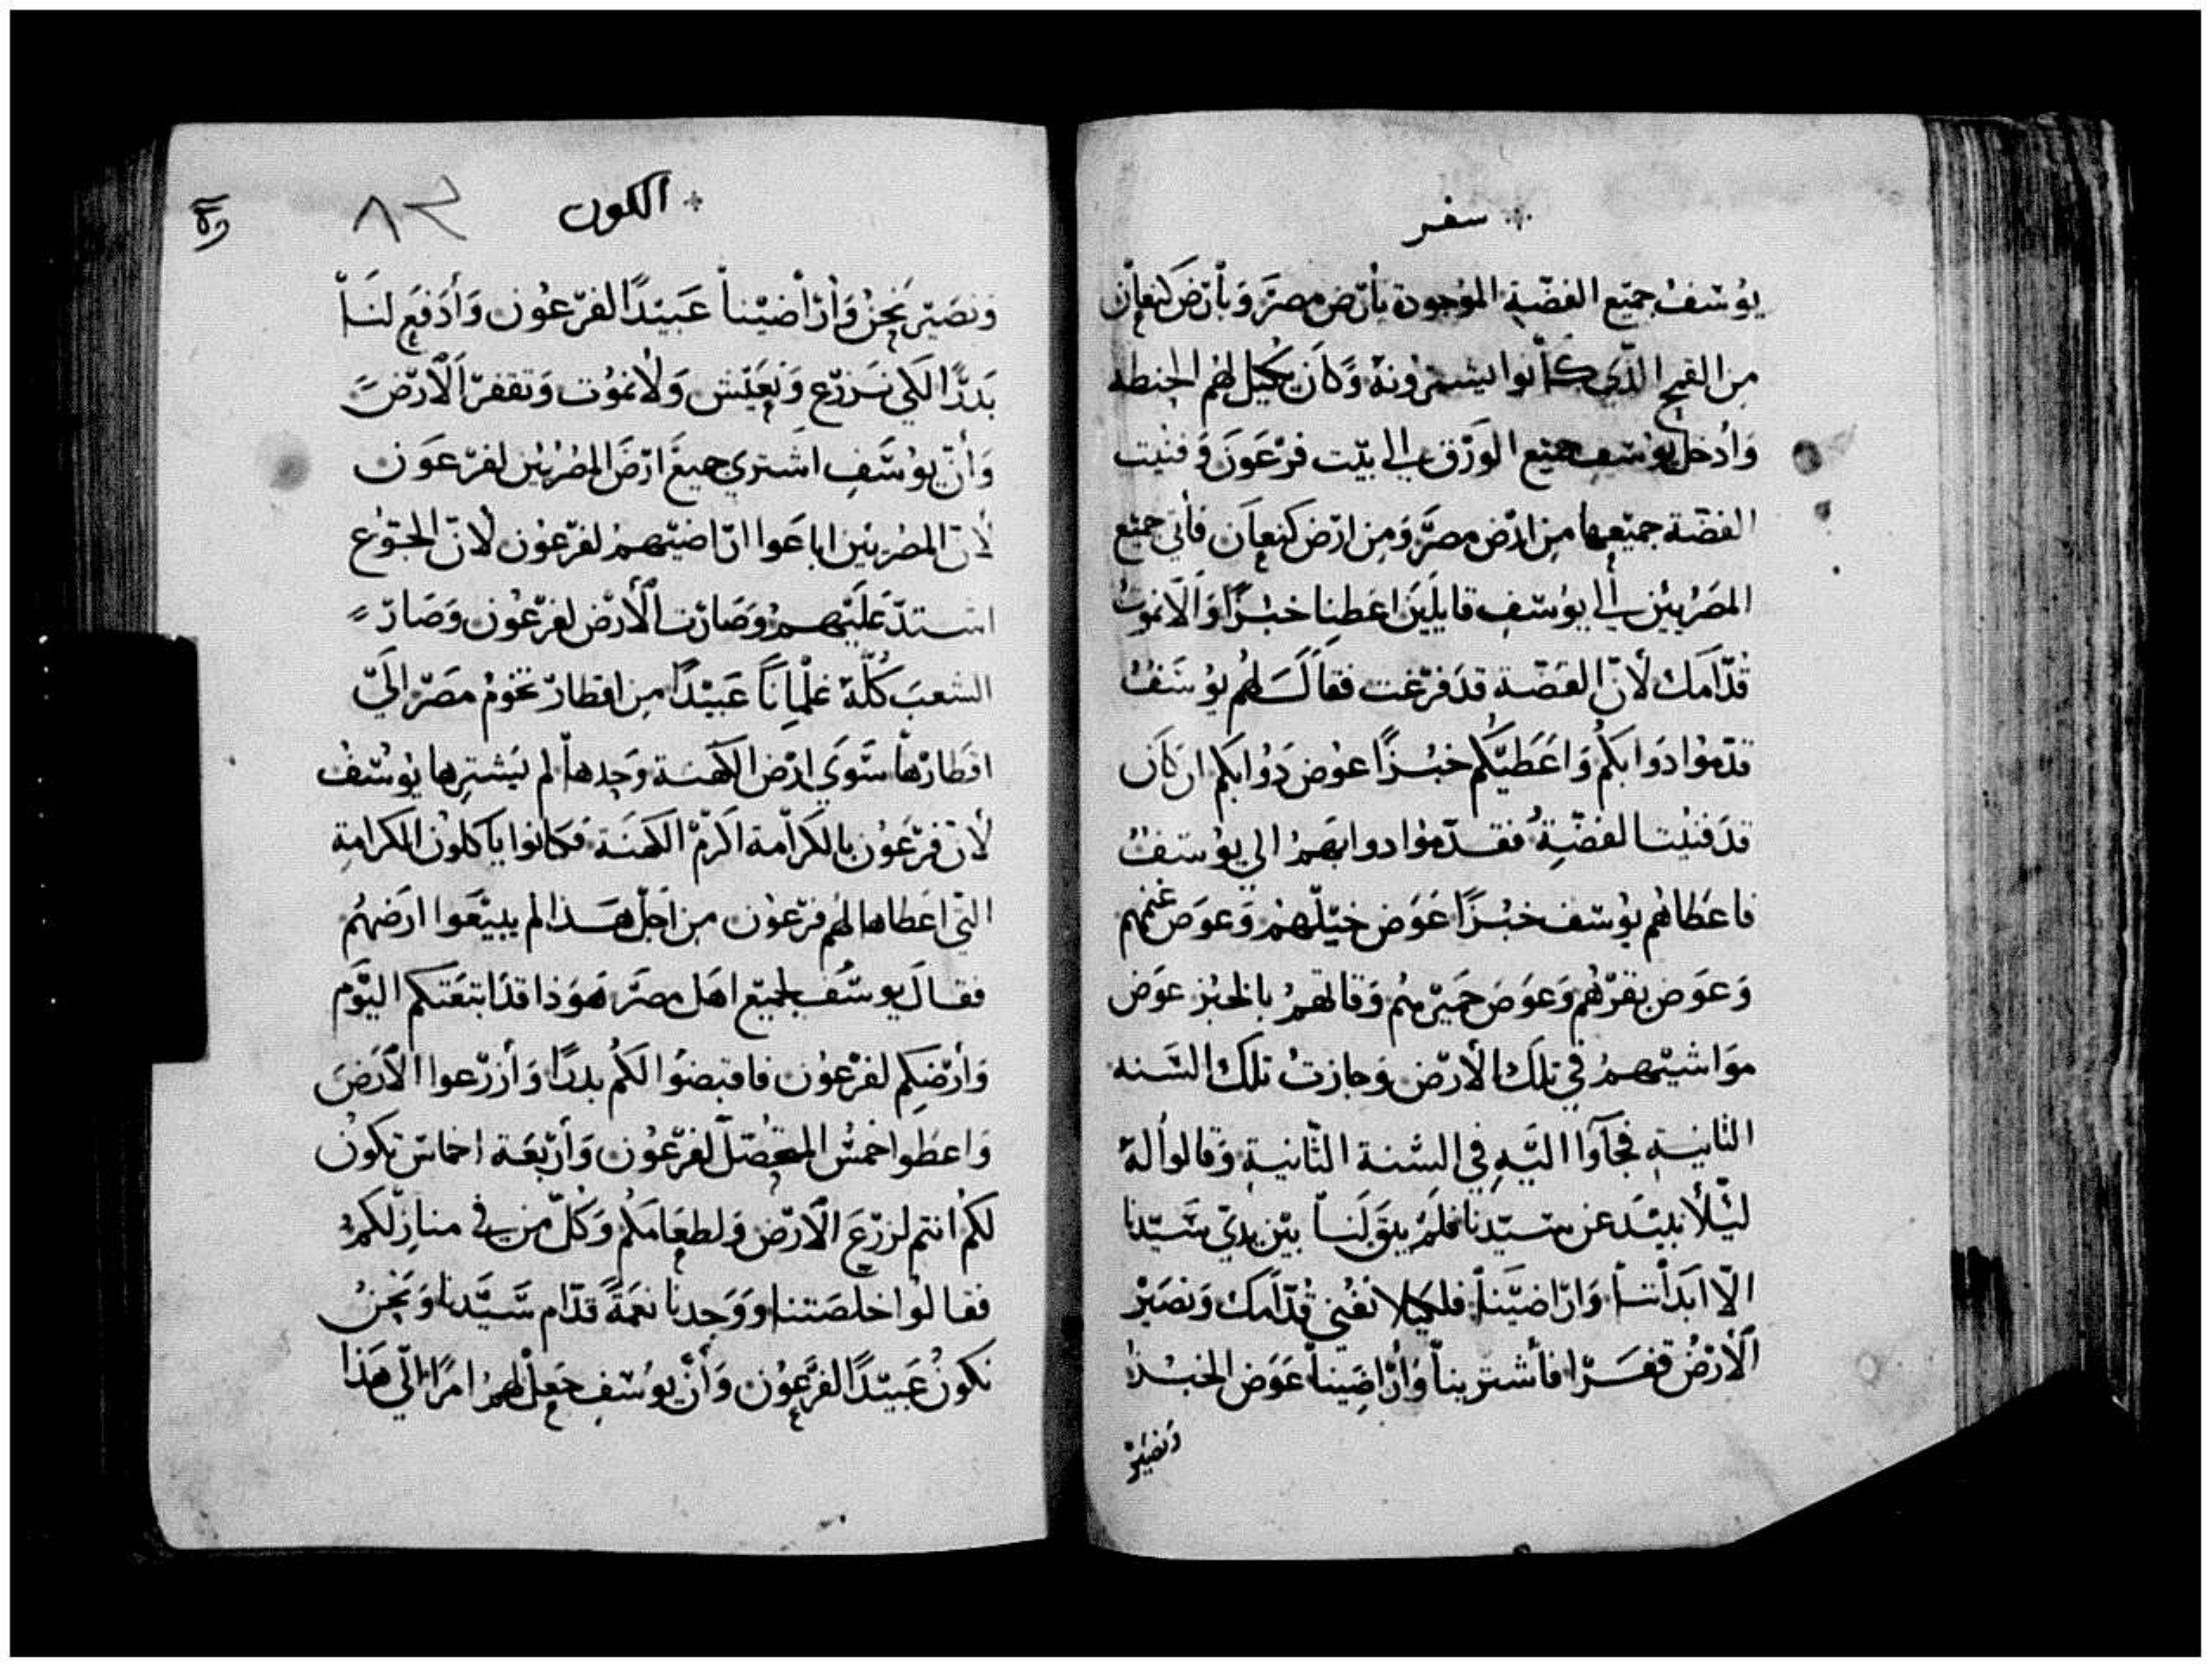 سفر
يوسف جميع الفضة الموجودة بأرض مصر وبأرض كنعان
من القمح الذي كانوا يشترونه وكان يكيل لهم الحنطه
وأدخل يوسف جميع الورق الى بيت فرعون وفنيت
الفضة جميعها من ارض مصر ومن ارض كنعان فأتي جميع
المصريين الى يوسف قايلين اعطنا خبزًا والا نموت
قدامك لأن الفضة قد فرغت فقال لهم يوسف
قدموا دوابكم واعطيكم خبزًا عوض دوابكم ان كان
قد فنيت الفضة فقدموا دوابهم الي يوسف
فاعطاهم يوسف خبزًا عوض خيلهم وعوض غنمهم
وعوض بقرهم وعوض حميرهم وقاتهم بالخبز عوض
مواشيهم في تلك الأرض وجازت تلك السنه
الثانية فجآوا اليه في السنة الثانية وقالوا له
ليلا نبيد عن سيدنا فلم يبق لنا بين يدي سيدنا
الا ابداننا واراضينا فلكيلا نفني قدامك ونصير
الأرض قفرا فأشترينا وأراضينا عوض الخبز
ونصير
الكون
٨٣
ونصير نحن وأراضينا عبيدًا لفرعون وأدفع لنا
بدرًا لكي نزرع ونعيش ولا نموت وتقفر الأرض
وأن يوسف اشتري جميع ارض المصريين لفرعون
لأن المصريين اباعوا اراضيهم لفرعون لأن الجوع
اشتد عليهم وصارت الأرض لفرعون وصار
الشعب كله غلمانا عبيدًا من اقطار تخوم مصر الي
اقطارها سوي ارض الكهنة وحدها لم يشترها يوسف
لأن فرعون بالكرامة اكرم الكهنة فكانوا ياكلون الكرامة
التي اعطاها لهم فرعون من اجل هذا لم يبيعوا ارضهم
فقال يوسف لجميع اهل مصر هوذا قد ابتعتكم اليوم
وأرضكم لفرعون فاقبضوا لكم بدرًا وأزرعوا الأرض
واعطوا خمس المتحصل لفرعون وأربعة اخماس تكون
لكم انتم لزرع الأرض ولطعامكم وكل من في منازلكم
فقالوا خلصتنا ووجدنا نعمة قدام سيدنا ونحن
نكون عبيدًا لفرعون وأن يوسف جعل لهم امرًا الي هذا